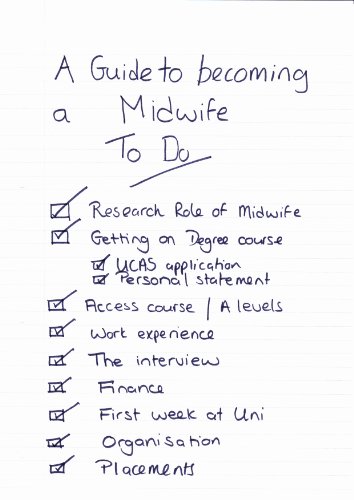 A Guide to becoming
a Midwife
To Do
Research Role of Midwife
Getting on Degree course
UCAS application
Personal statement
Access course / A levels
Work experience
The interview
Finance
First week at Uni
Organisation
Placements